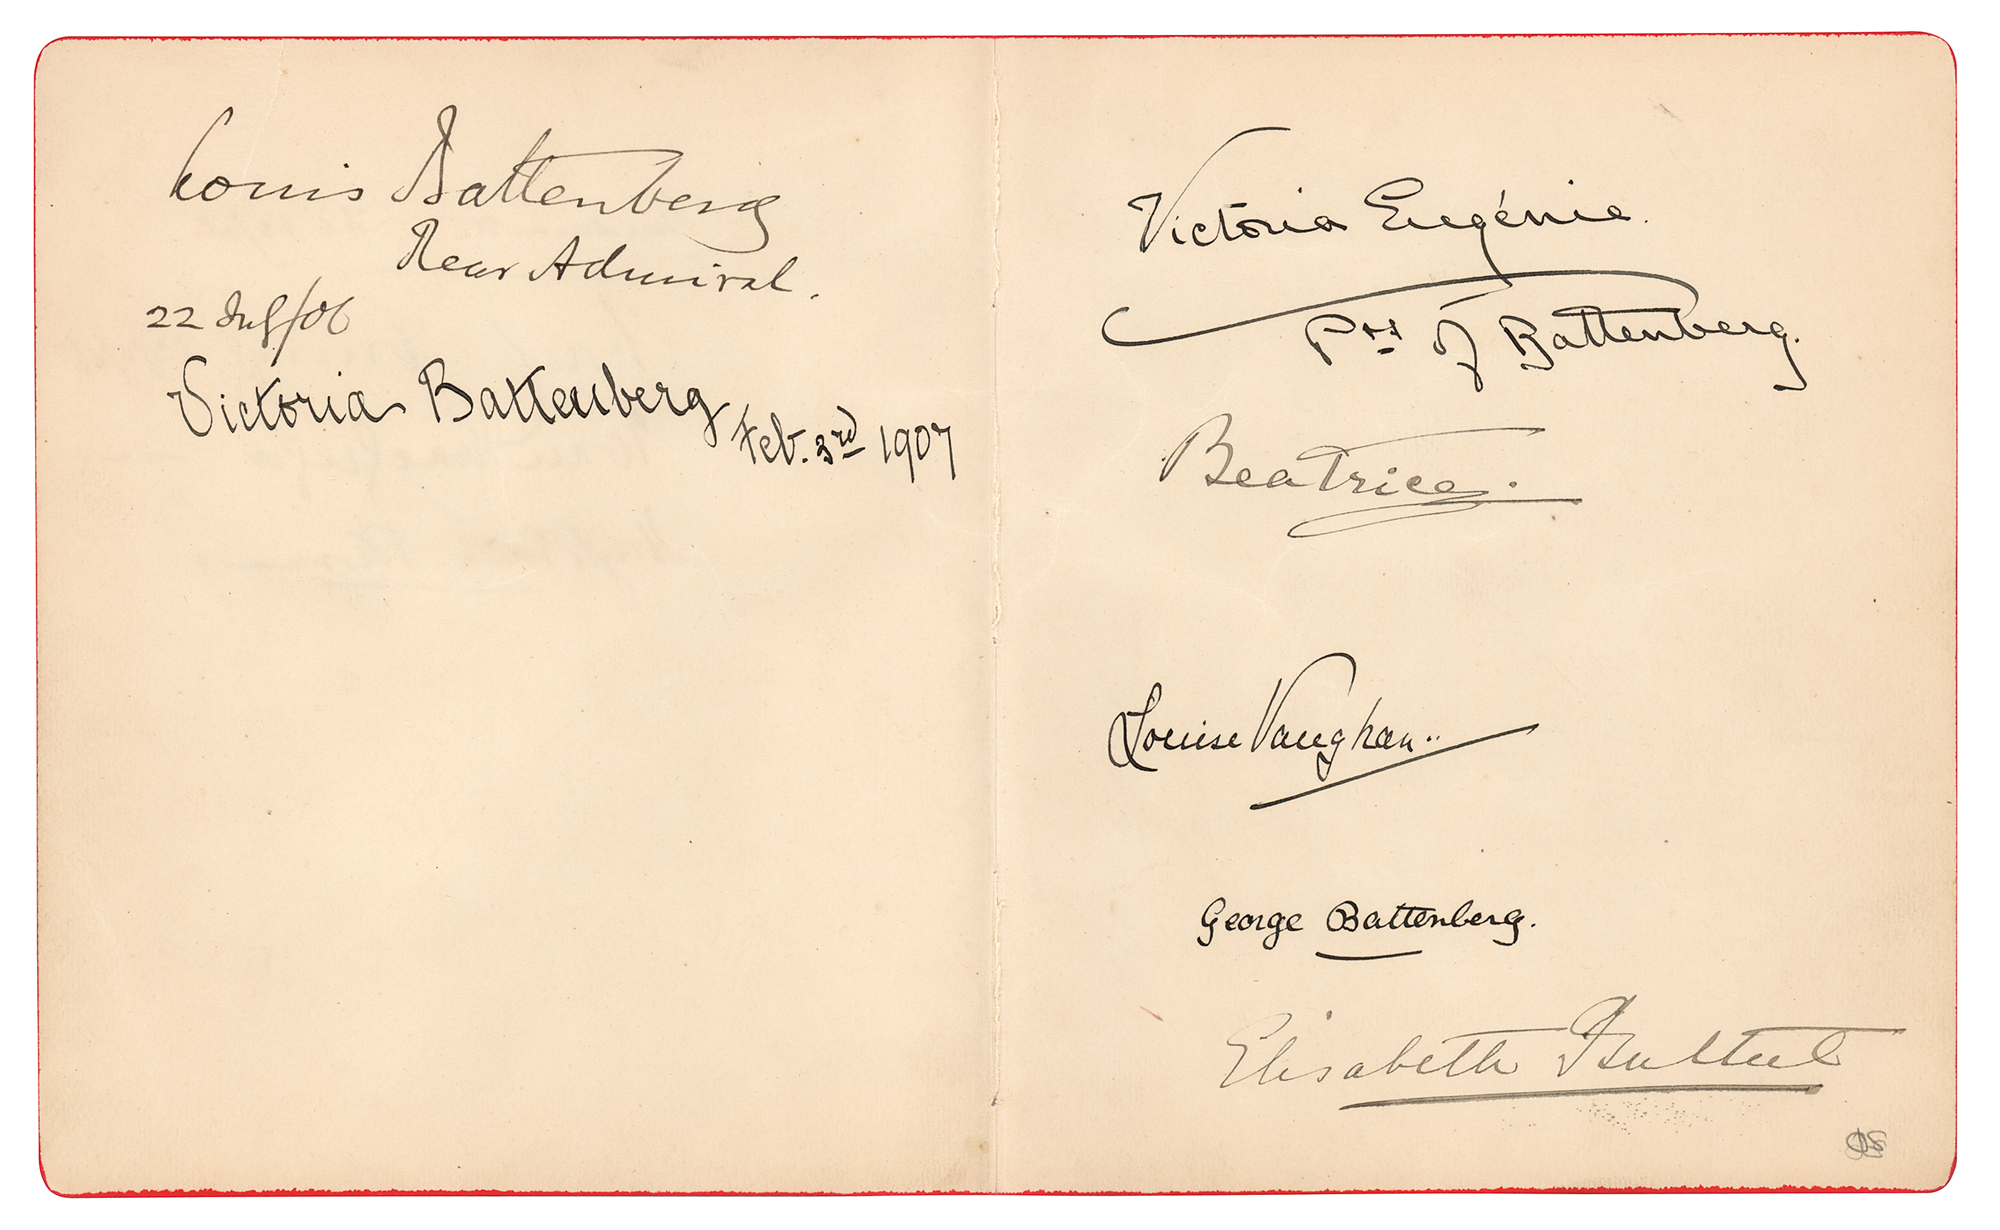 Louis Battenberg
Rear Admiral.
22 July/06
Victoria Battenberg
Feb. 3rd 1907
Victoria Eugénie.
Pss of Battenberg.
Beatrice.
Louise Vaughan..
George Battenberg.
Elisabeth Bulteel